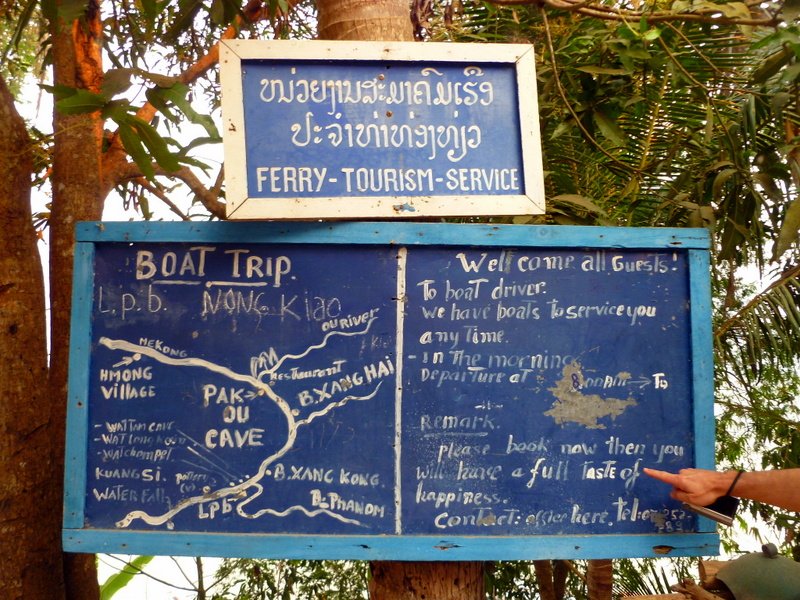 ໜ່ວຍງານສະມາຄົມເຮືອ
ປະຈຳທ່າທ່ອງທ່ຽວ
FERRY-TOURISM-SERVICE
BOAT TRIP.
L.p.b. NONG Kiao
OU RIVER
MEKONG
HMONG
VILLAGE
Restaurant
B.XANG HAI
PAK
OU
CAVE
KUANG SI.
WATER FALL
B.XANG KONG.
B.PHANOM
Lpb
Well come all Guests!
To boat driver.
We have boats to service you
any Time.
- in the morning
Departure at 8:00AM → To
Remark.
please book now then you
will have a full taste of
happiness.
Contact: office here. Tel: